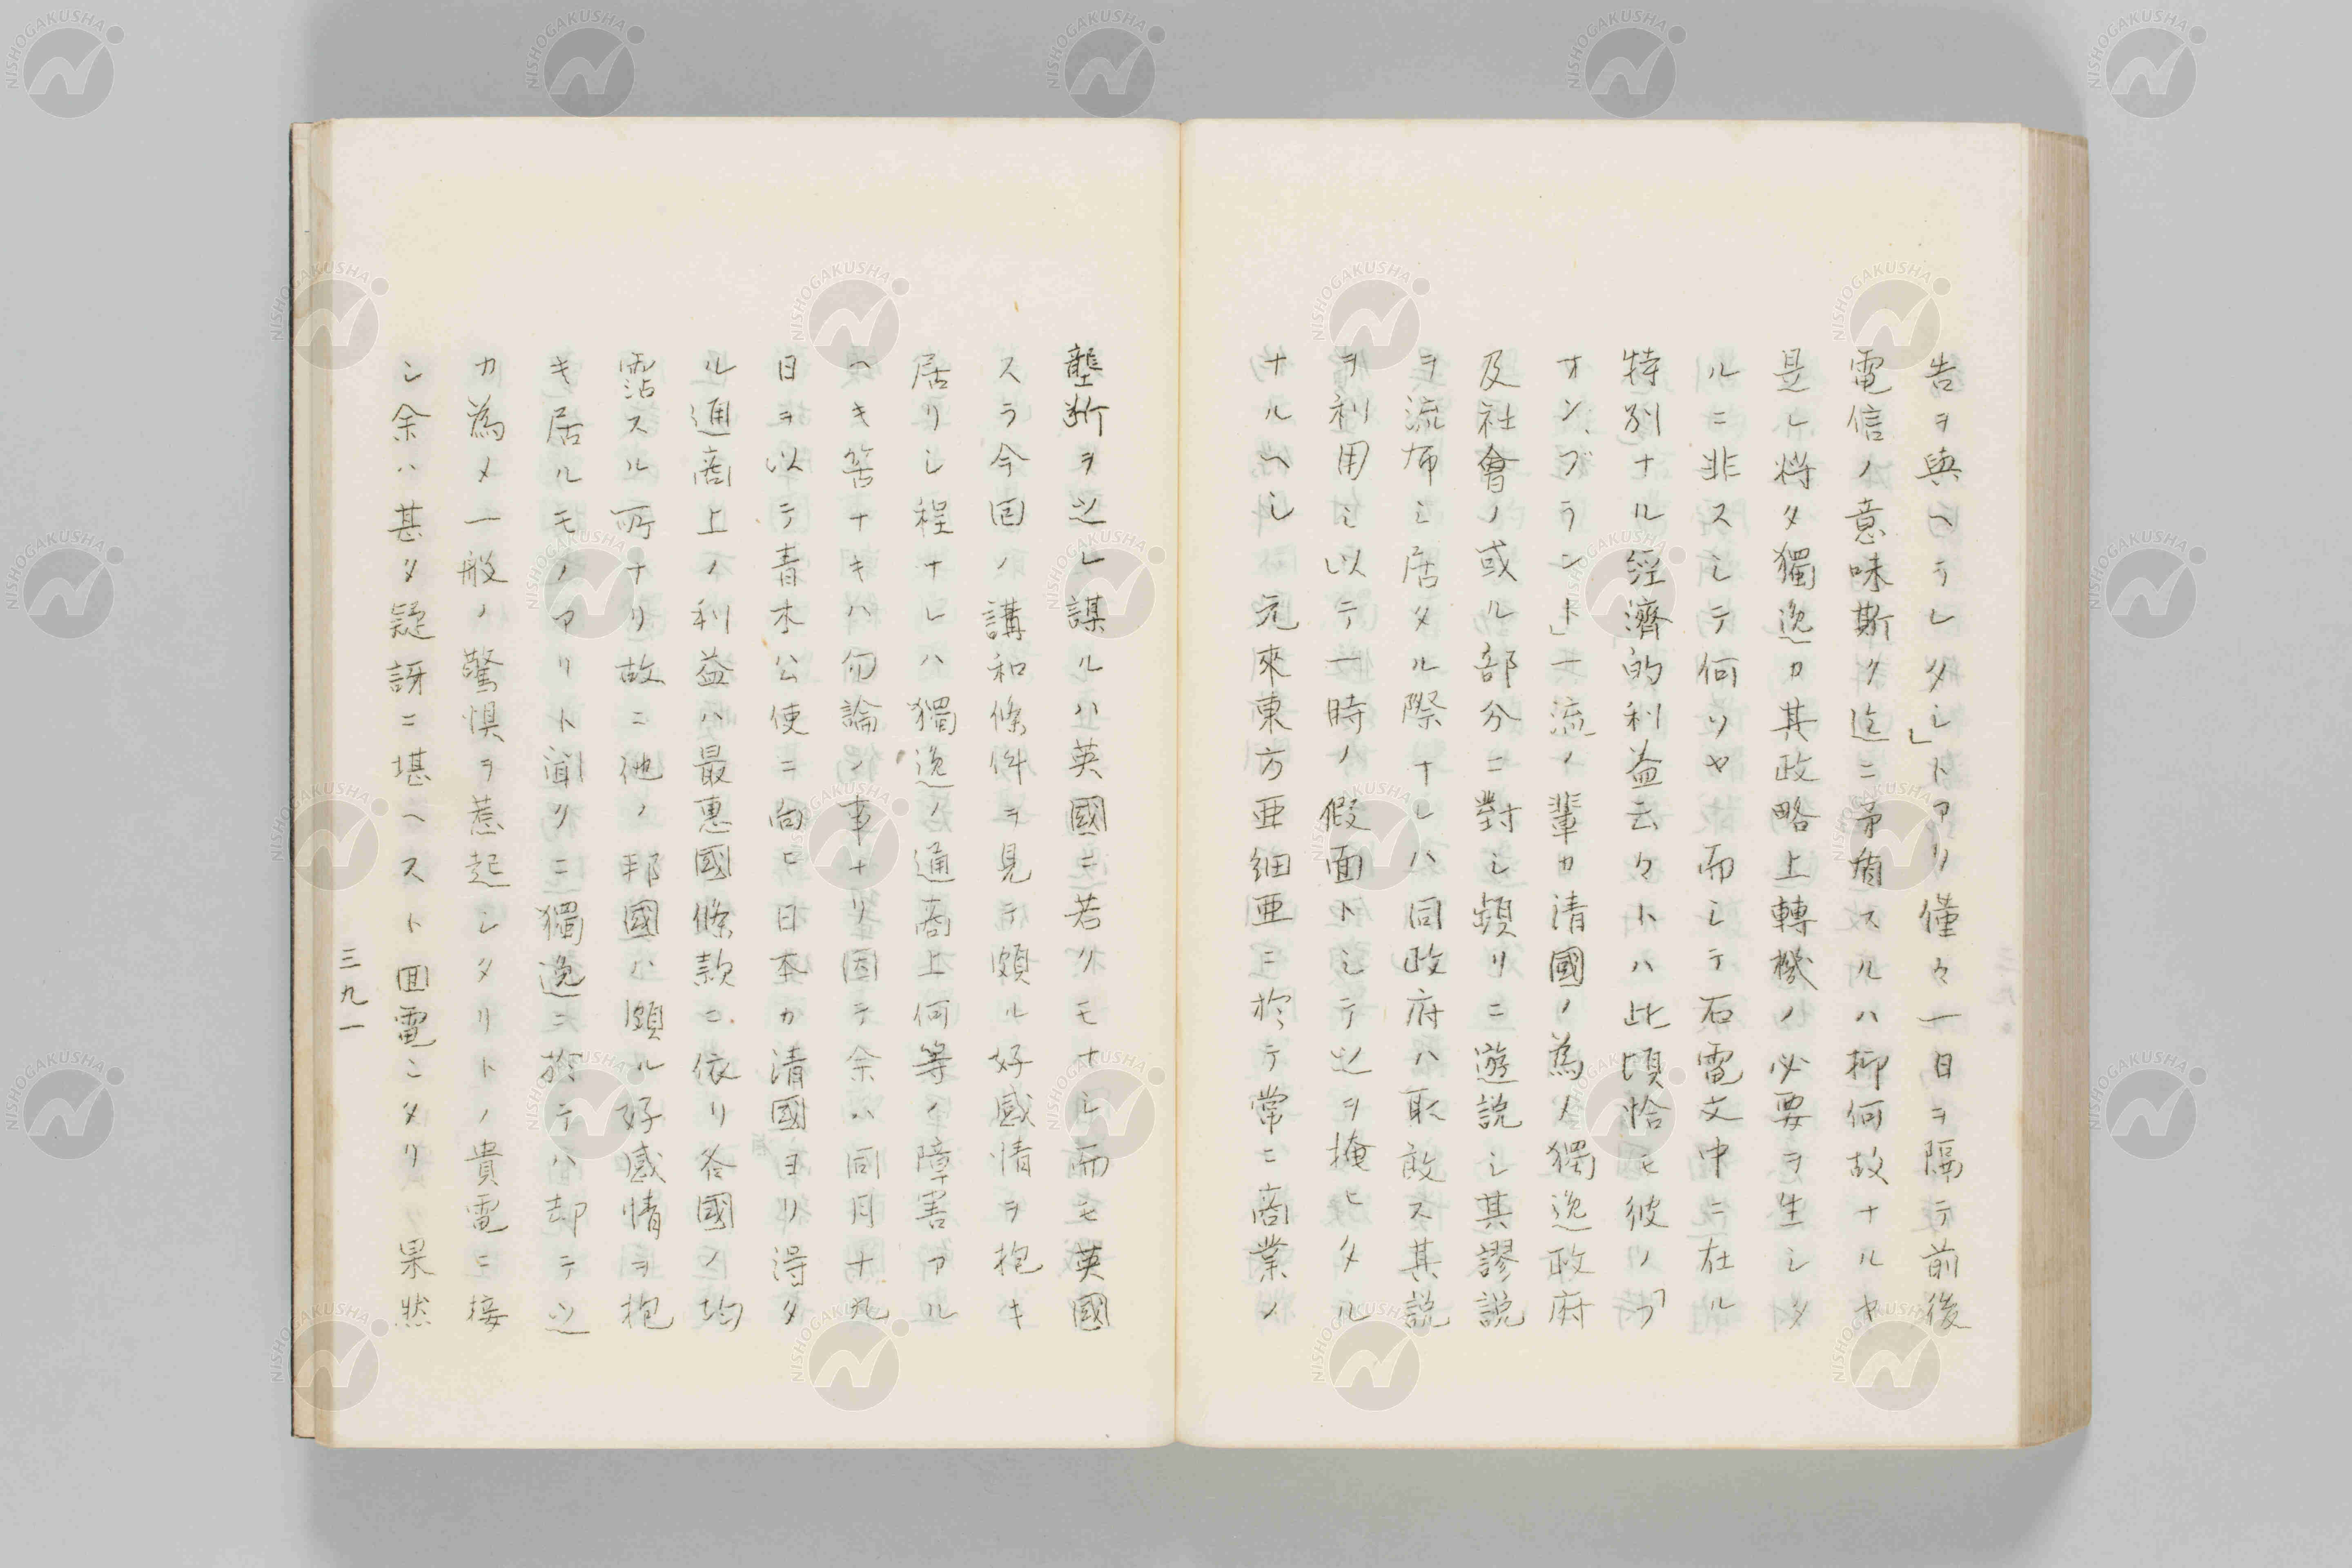 告ヲ與ヘラレタシ」トアリ僅々一日ヲ隔テ前後
電信ノ意味斯ク迄ニ矛盾スルハ抑何故ナルヤ
是レ将タ獨逸カ其政略上轉機ノ必要ヲ生シタ
ルニ非スシテ何ソヤ而シテ右電文中ニ在ル
特別ナル經濟的利益云々トハ此頃恰モ彼ノ「フ
オン、ブラント」一流ノ輩カ清國ノ為メ獨逸政府
及社會ノ或ル部分ニ對シ頻リニ遊説シ其謬説
ヲ流布シ居タル際ナレハ同政府ハ取敢ス其説
ヲ利用シ以テ一時ノ假面トシテ之ヲ掩ヒタル
ナルヘシ元來東方亜細亜ニ於テ常ニ商業ノ
壟断ヲ之レ謀ルハ英國ニ若クモナシ而モ英國
スラ今回ノ講和條件ヲ見テ頗ル好感情ヲ抱キ
居リシ程ナレハ獨逸ノ通商上何等ノ障害アル
ヘキ筈ナキハ勿論ノ事ナリ因テ余ハ同月十九
日ヲ以テ青木公使ニ向ヒ日本カ清國ヨリ得タ
ル通商上ノ利益ハ最惠國條款ニ依リ各國ノ均
霑スル所ナリ故ニ他ノ邦國ハ頗ル好感情ヲ抱
キ居ルモノアリト聞クニ獨逸ニ於テハ却テ之
カ為メ一般ノ驚愕ヲ惹起シタリトノ貴電ニ接
シ余ハ甚タ疑訝ニ堪ヘスト回電シタリ果然
三九一
NISHOGAKUSHA